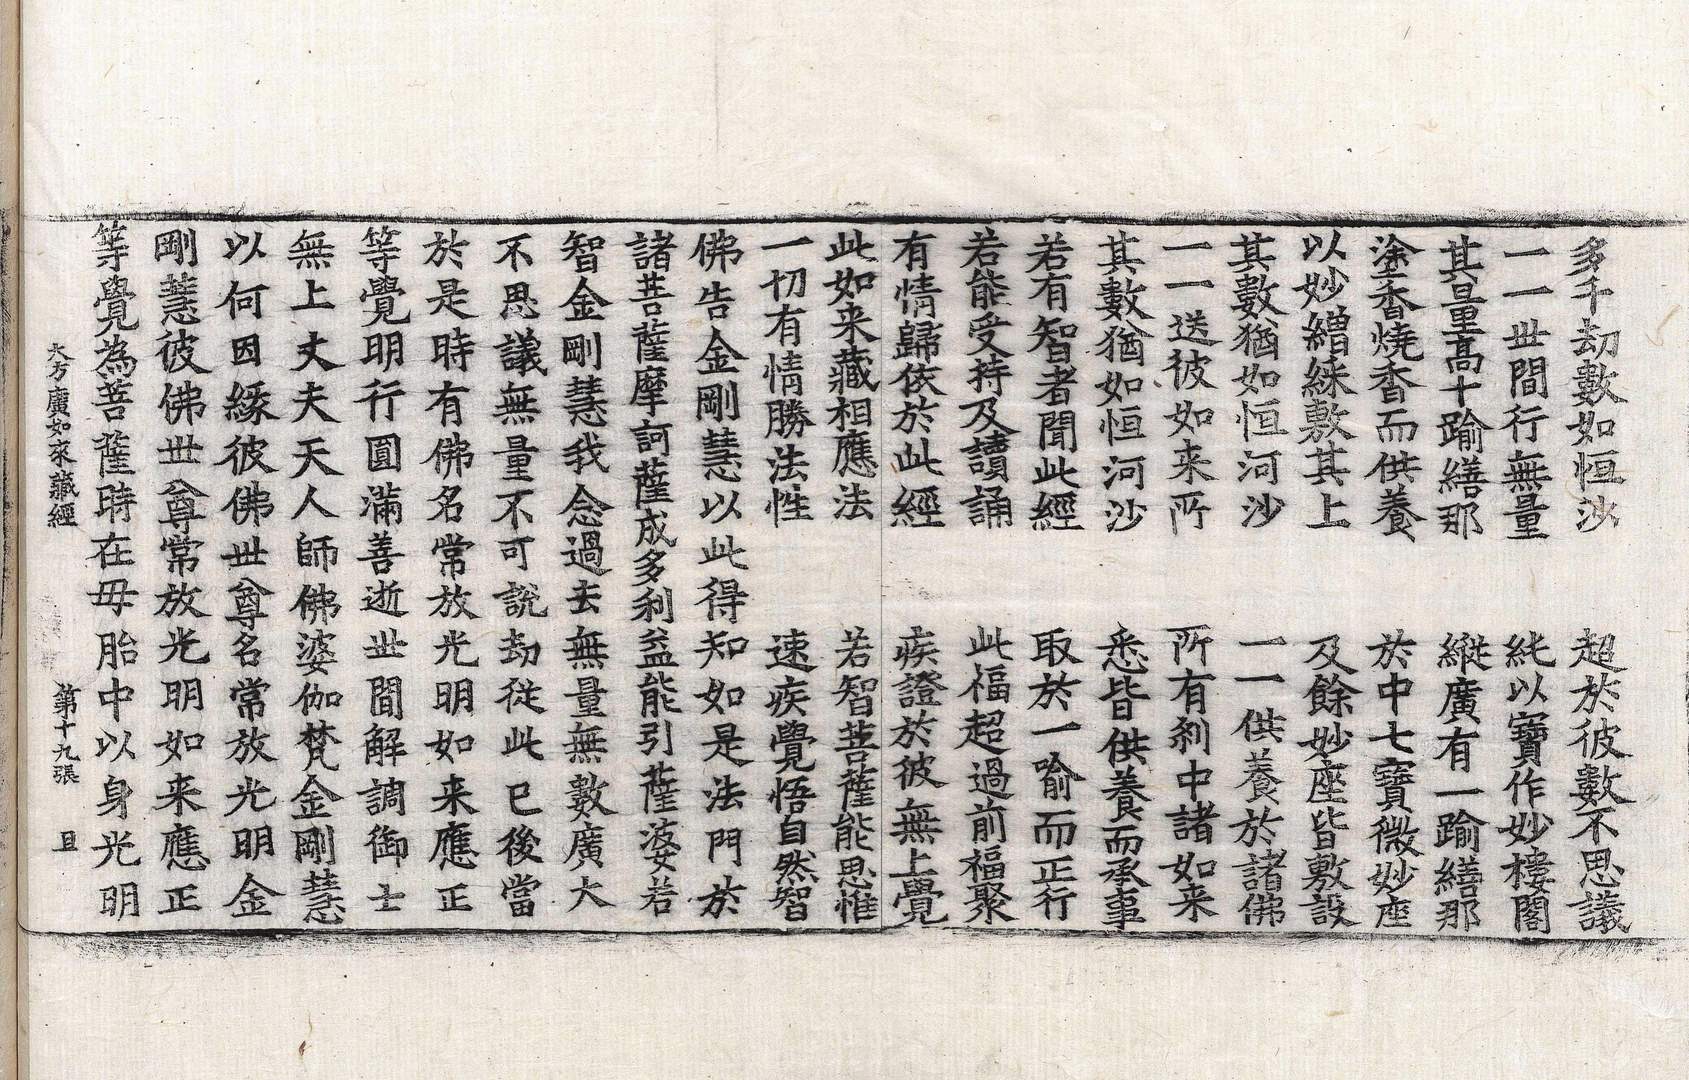 多千劫數如恒沙　超於彼數不思議
一一世間行無量　純以寶作妙樓閣
其量高十踰繕那　縱廣有一踰繕那
塗香燒香而供養　於中七寶微妙座
以妙繒綵敷其上　及餘妙座皆敷設
其數猶如恒河沙　一一供養於諸佛
一一送彼如来所　所有刹中諸如来
其數猶如恒河沙　悉皆供養而承事
若有智者聞此經　取於一喻而正行
若能受持及讀誦　此福超過前福聚
有情歸依於此經　疾證於彼無上覺
此如来藏相應法　若智菩薩能思惟
一切有情勝法性　速疾覺悟自然智
佛告金剛慧以此得知如是法門於
諸菩薩摩訶薩成多利益能引薩婆若
智金剛慧我念過去無量無數廣大
不思議無量不可說劫從此已後當
於是時有佛名常放光明如来應正
等覺明行圓滿善逝世間解調御士
無上丈夫天人師佛婆伽梵金剛慧
以何因緣彼佛世尊名常放光明金
剛慧彼佛世尊常放光明如来應正
等覺為菩薩時在母胎中以身光明
大方廣如來藏經　第十九張　旦